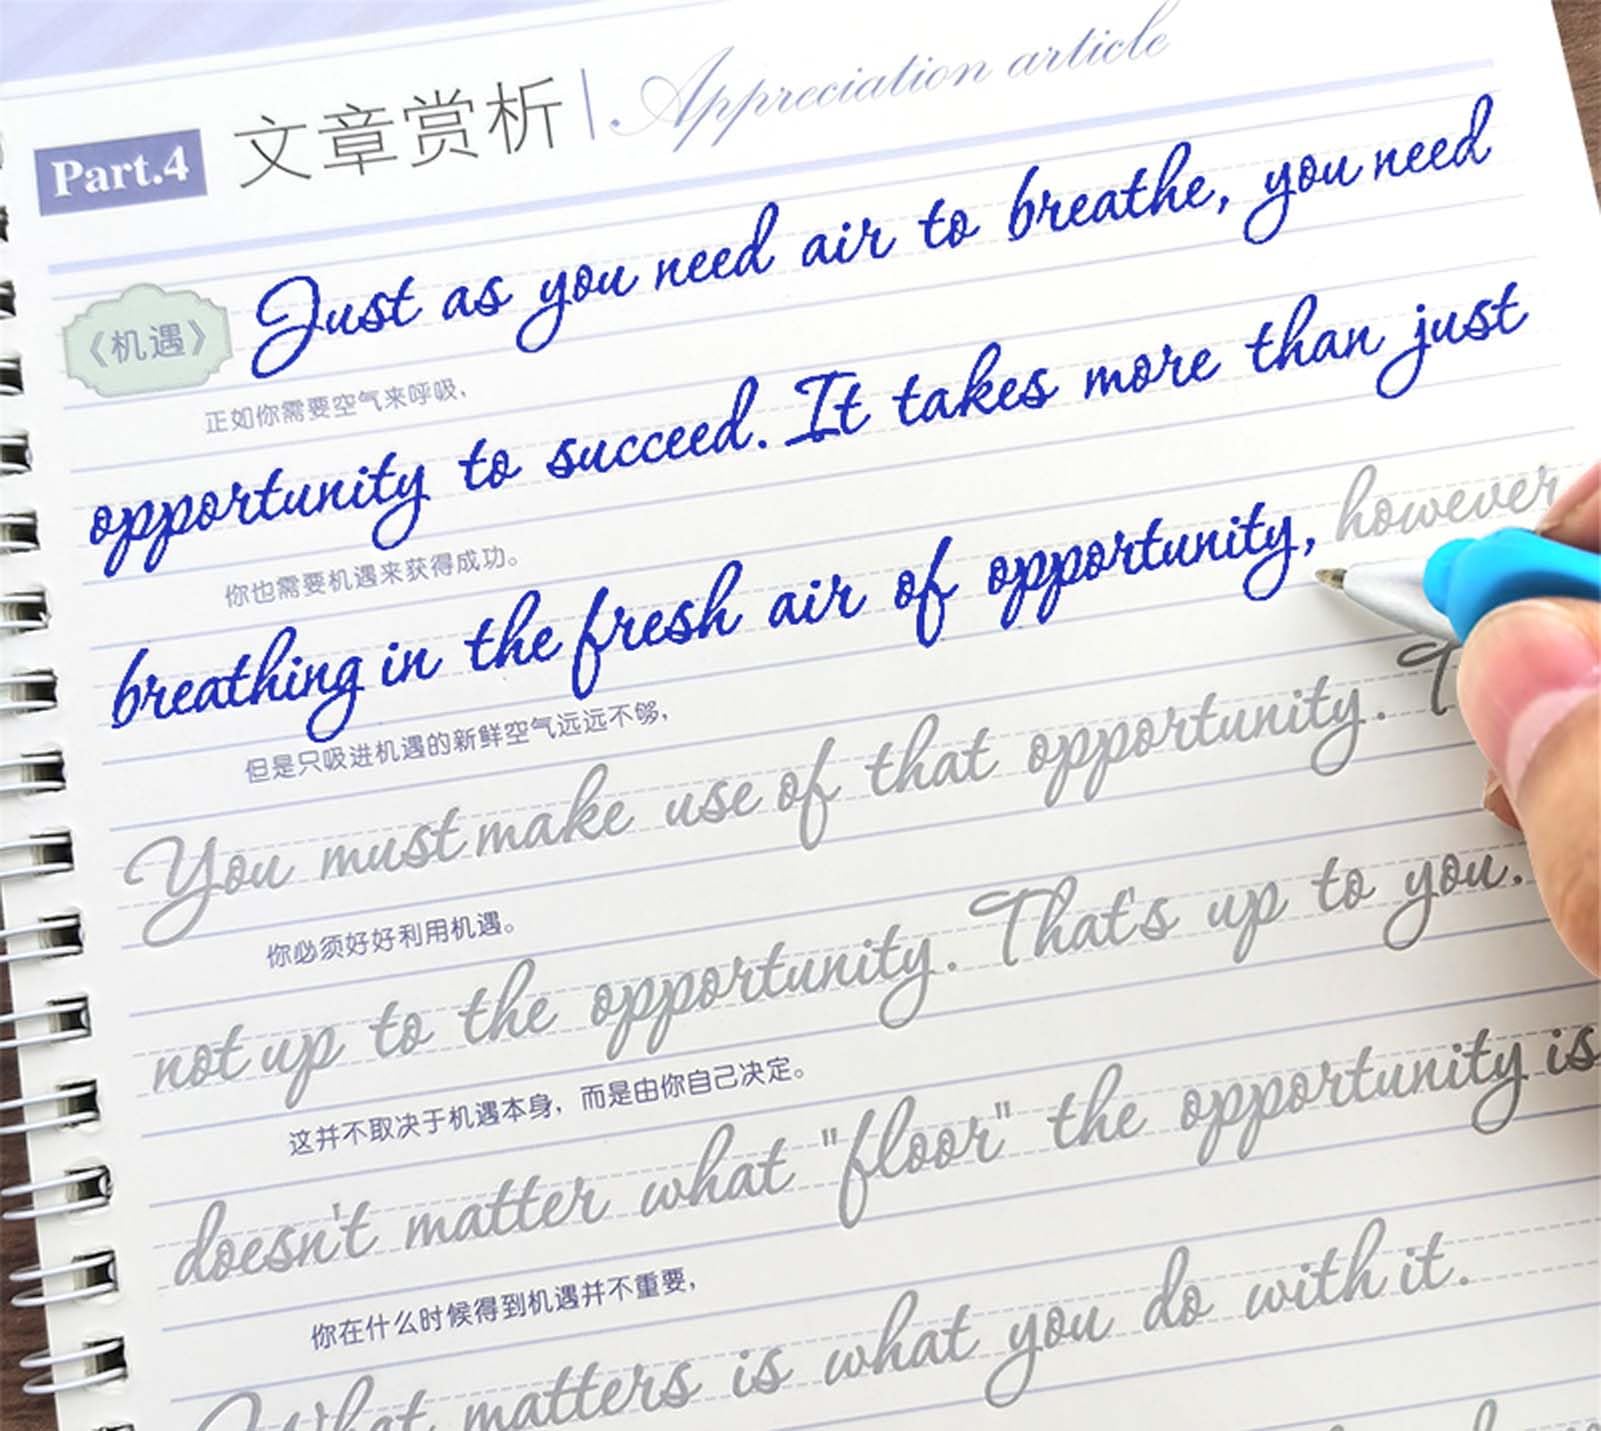 Part.4 文章赏析 Appreciation article
《机遇》 Just as you need air to breathe, you need
正如你需要空气来呼吸,
opportunity to succeed. It takes more than just
你也需要机遇来获得成功。
breathing in the fresh air of opportunity, however
但是只吸进机遇的新鲜空气远远不够,
You must make use of that opportunity. T
你必须好好利用机遇。
not up to the opportunity. That's up to you.
这并不取决于机遇本身，而是由你自己决定。
doesn't matter what "floor" the opportunity is
你在什么时候得到机遇并不重要,
What matters is what you do with it.